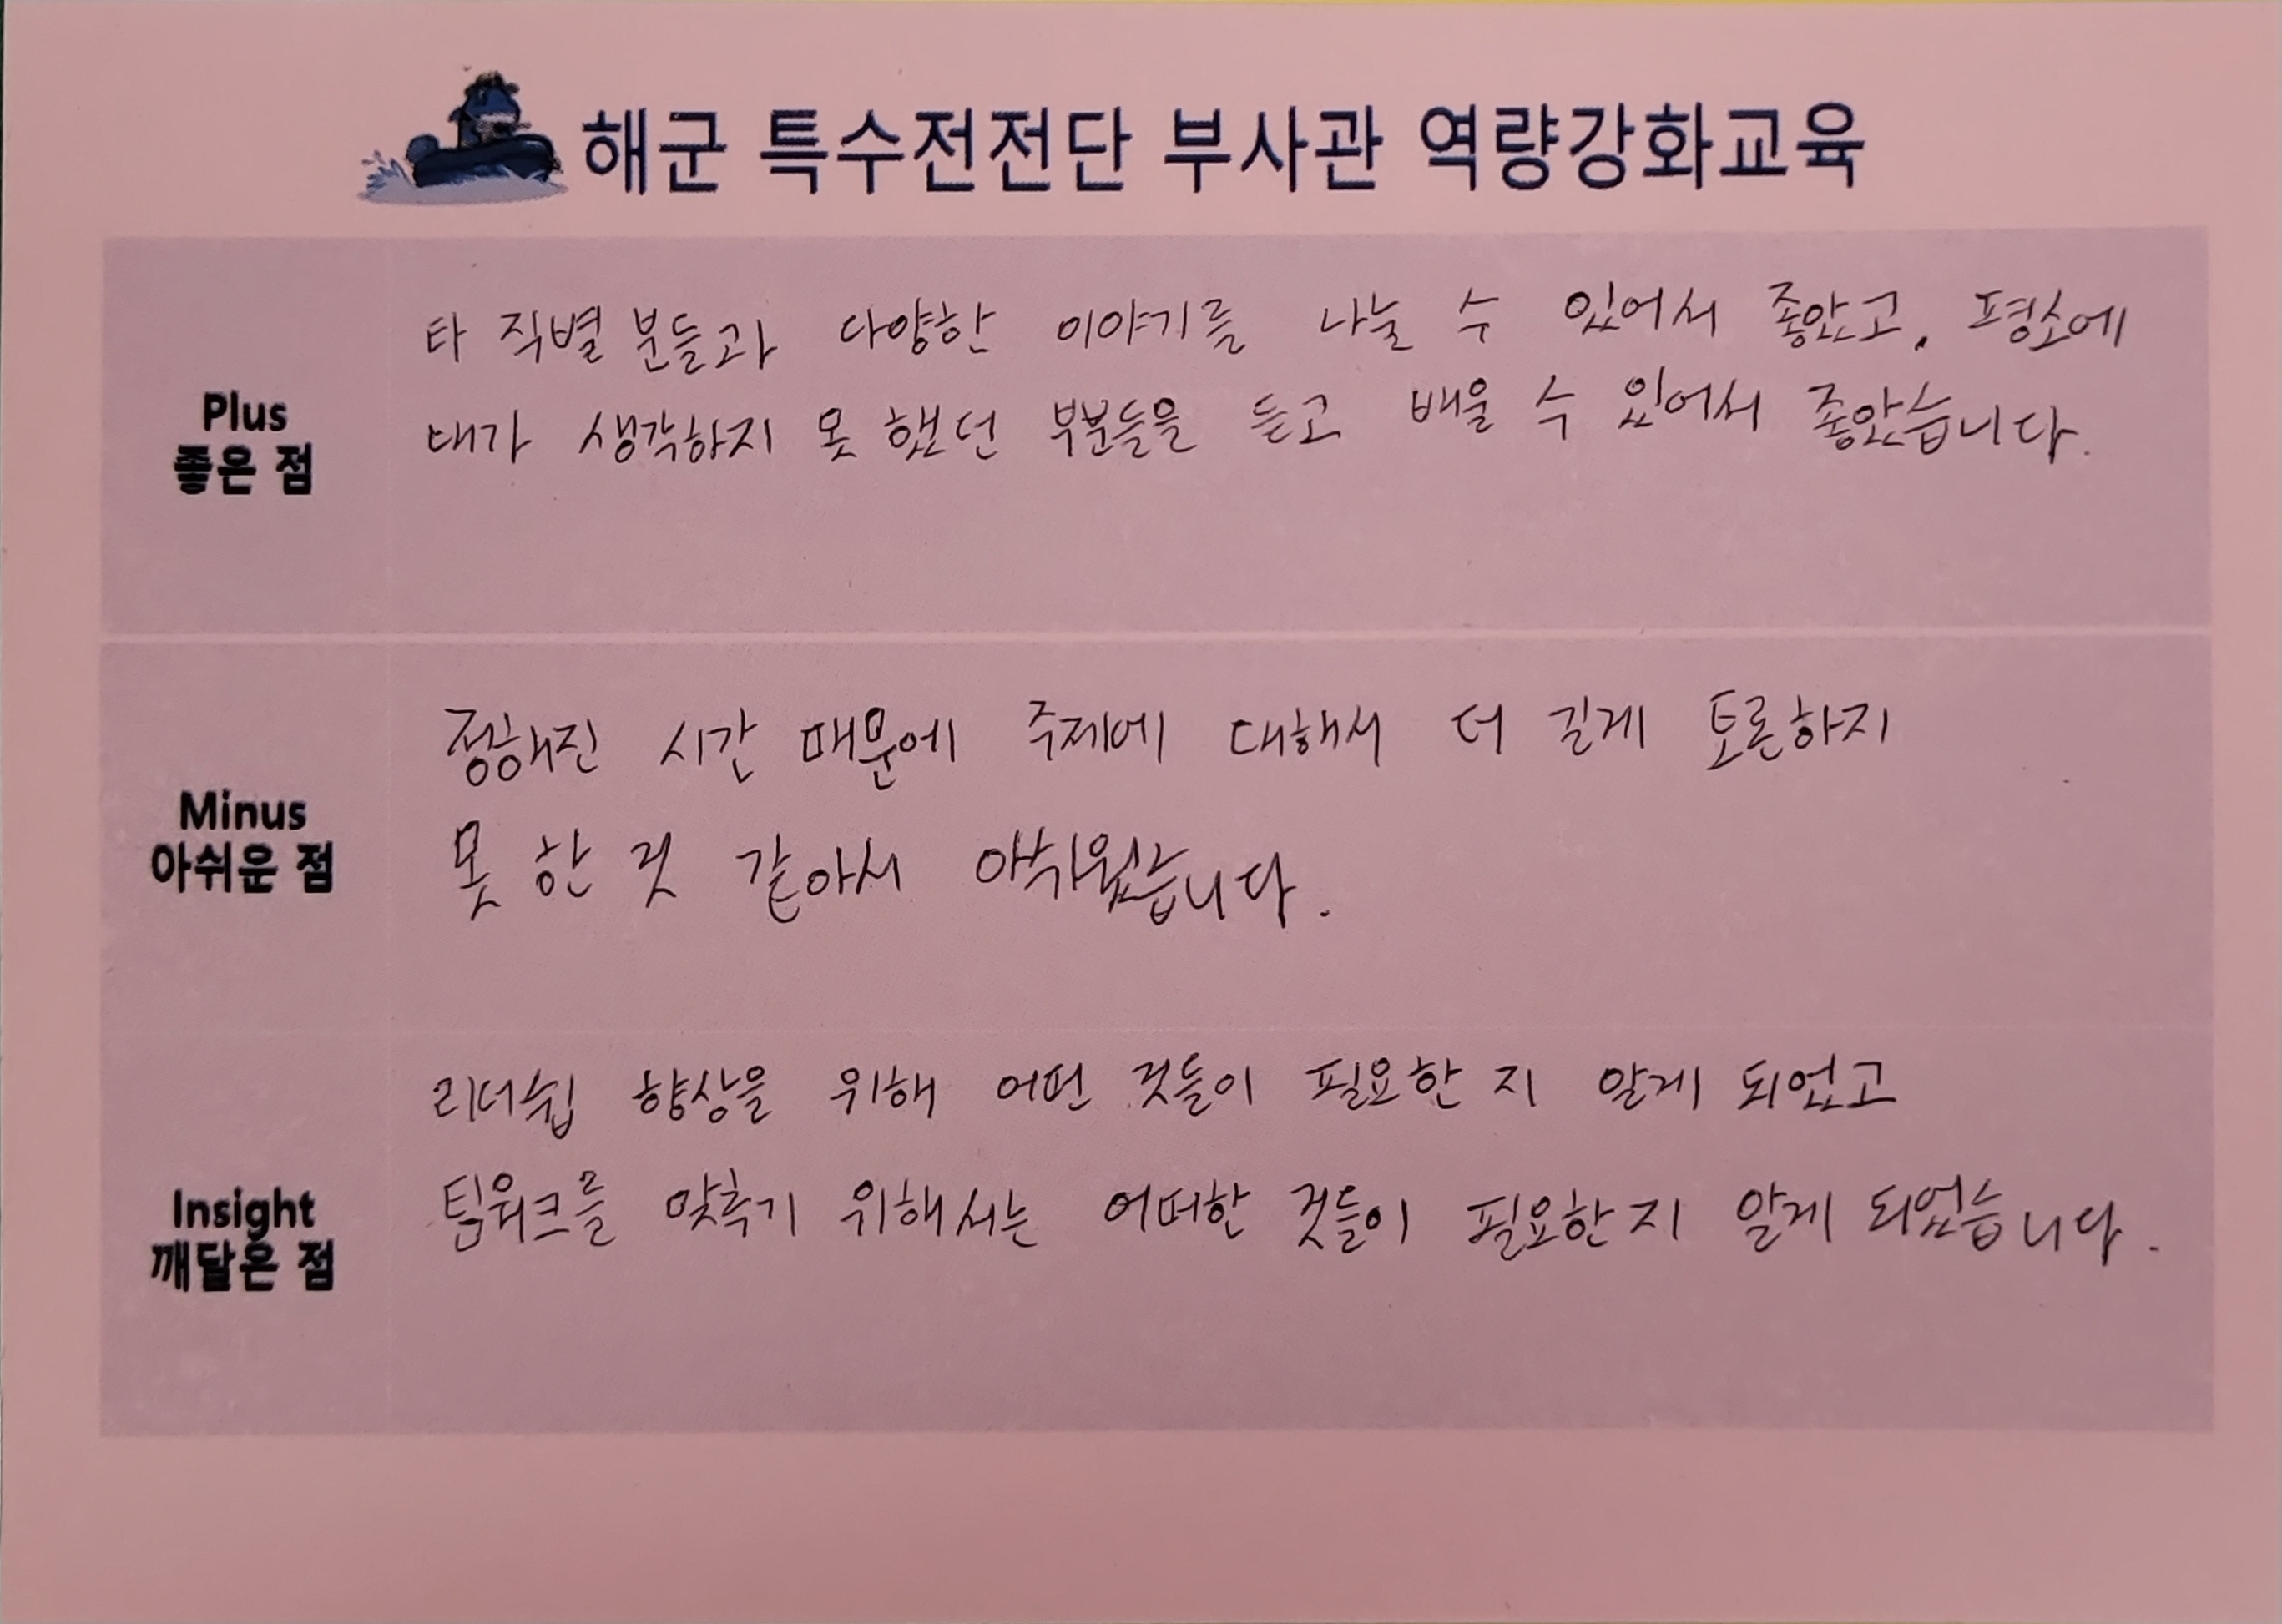 해군 특수전전단 부사관 역량강화교육
Plus
좋은 점
타 직별 분들과 다양한 이야기를 나눌 수 있어서 좋았고, 평소에
내가 생각하지 못 했던 부분들을 듣고 배울 수 있어서 좋았습니다.
Minus
아쉬운 점
정해진 시간 때문에 주제에 대해서 더 길게 토론하지
못 한 것 같아서 아쉬웠습니다.
Insight
깨달은 점
리더쉽 향상을 위해 어떤 것들이 필요한 지 알게 되었고
팀워크를 맞추기 위해서는 어떠한 것들이 필요한 지 알게 되었습니다.